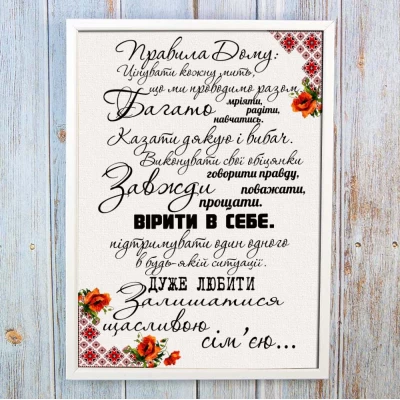 Правила Дому:
Цінувати кожну мить,
що ми проводимо разом.
Багато мріяти, радіти, навчатись.
Казати дякую і вибач.
Виконувати свої обіцянки
Завжди говорити правду, поважати, прощати.
ВІРИТИ В СЕБЕ.
підтримувати один одного
в будь-якій ситуації.
ДУЖЕ ЛЮБИТИ
Залишатися
щасливою
сім'єю...